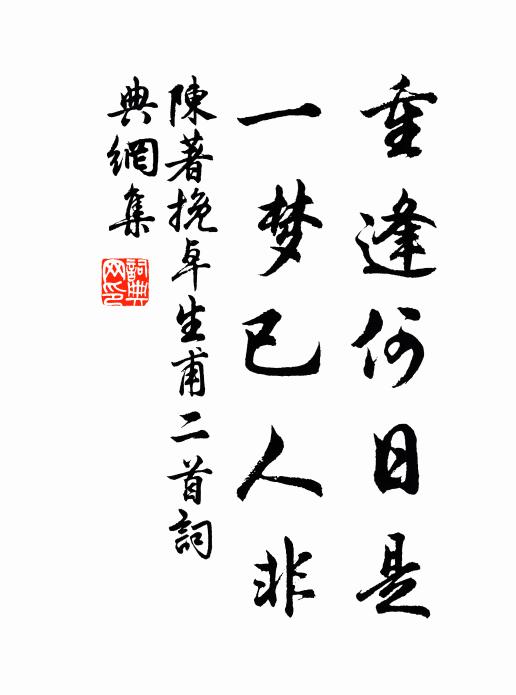 重逢何日是
一梦已人非
陳著挽卓生甫二首詞
典網集
詞典
网印